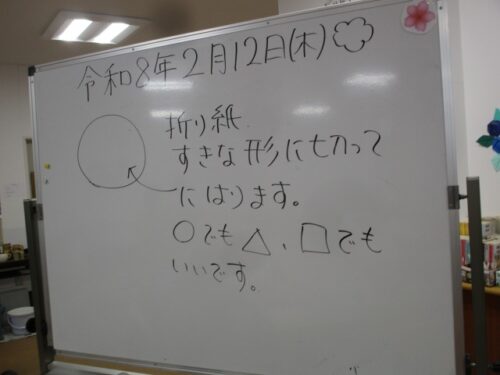 令和8年2月12日(木)
折り紙
すきな形に切って
にはります。
○でも△、□でも
いいです。